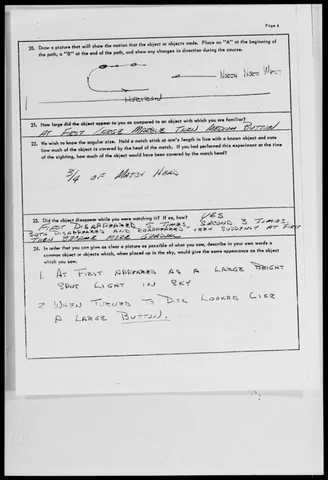 Page 4
20. Draw a picture that will show the motion that the object or objects made. Place an "A" at the beginning of
the path, a "B" at the end of the path, and show any changes in direction during the course.
North North West
Horizon
21. How large did the object appear to you as compared to an object with which you are familiar?
At First Large Marble Then Medium Button
22. We wish to know the angular size. Hold a match stick at arm's length in line with a known object and note
how much of the object is covered by the head of the match. If you had performed this experiment at the time
of the sighting, how much of the object would have been covered by the match head?
3/4 of Match Head
23. Did the object disappear while you were watching it? If so, how? Yes
First Disappeared 5 Times, Second 3 Times,
Both Disappeared and Reappeared very suddenly at first
Then became more gradual
24. In order that you can give as clear a picture as possible of what you saw, describe in your own words a
common object or objects which, when placed up in the sky, would give the same appearance as the object
which you saw.
1. At First appeared as a Large Bright
Spot Light in Sky
2 When Turned to Disc Looked Like
A Large Button.